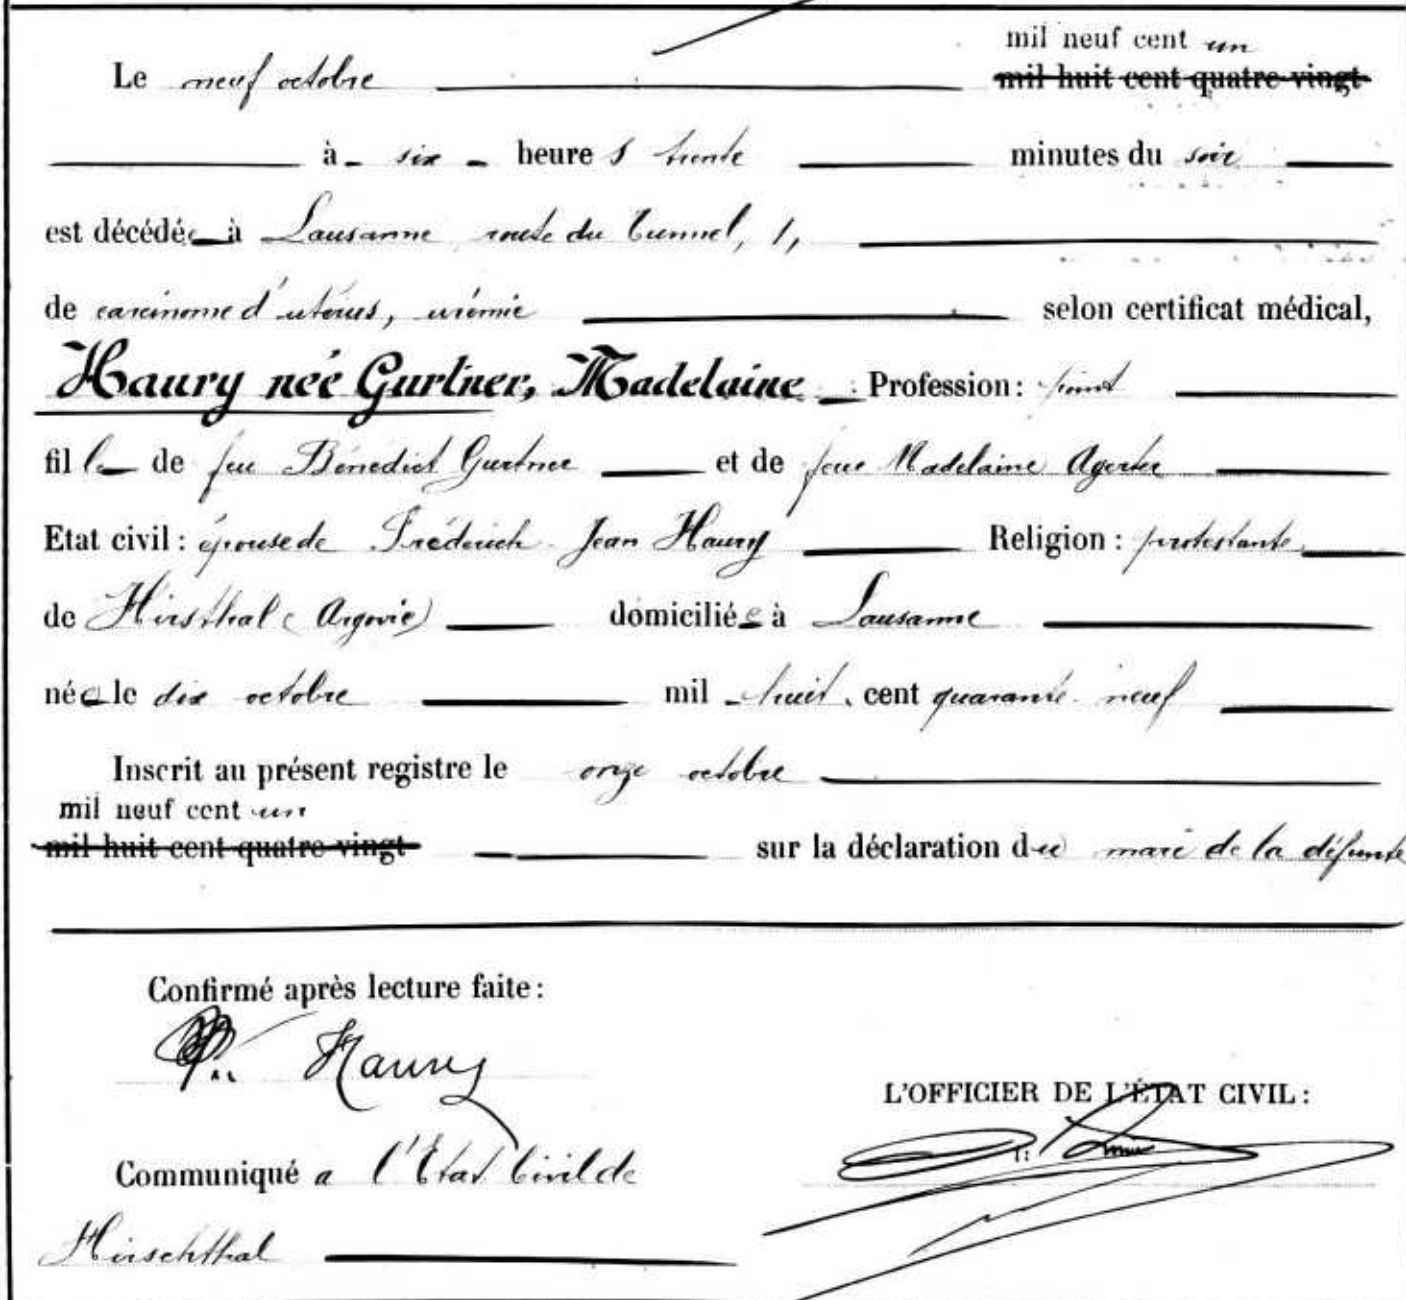 mil neuf cent un
Le neuf octobre mil huit cent quatre-vingt
à six heures trente minutes du soir
est décédée à Lausanne route du tunnel, 1,
de carcinome d'utérus, urémie selon certificat médical,
Haury née Gurtner, Madelaine Profession:
fille de feu Bénédict Gurtner et de feue Madelaine Agerter
Etat civil: épouse de Fréderich Jean Haury Religion: protestante
de Hirsthal (Argovie) domiciliée à Lausanne
née le dix octobre mil huit cent quarante-neuf
Inscrit au présent registre le onze octobre
mil neuf cent un
mil huit cent quatre-vingt sur la déclaration du mari de la défunte
Confirmé après lecture faite:
Haury
L'OFFICIER DE L'ÉTAT CIVIL:
Communiqué a l'Etat Civil de
Hirschthal